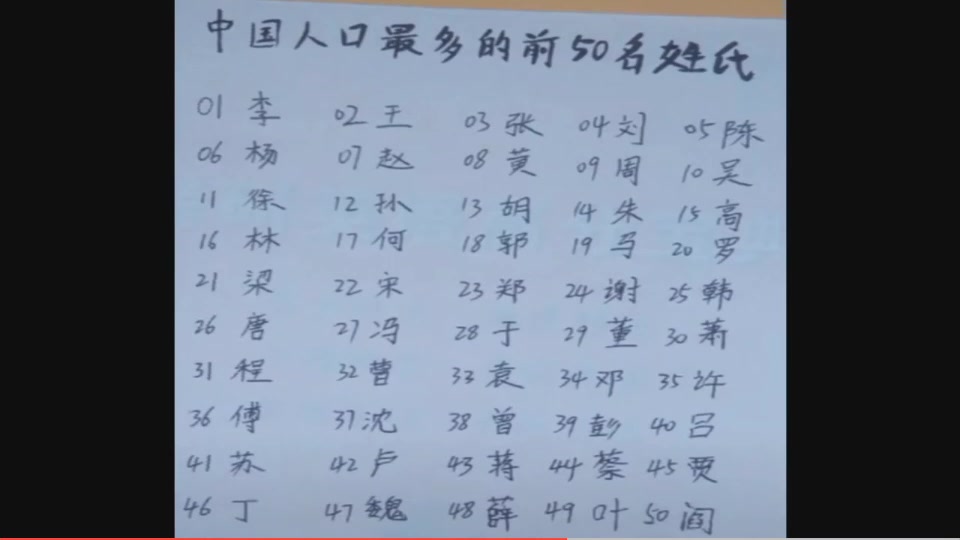 中国人口最多的前50名姓氏
01 李 02 王 03 张 04 刘 05 陈
06 杨 07 赵 08 黄 09 周 10 吴
11 徐 12 孙 13 胡 14 朱 15 高
16 林 17 何 18 郭 19 马 20 罗
21 梁 22 宋 23 郑 24 谢 25 韩
26 唐 27 冯 28 于 29 董 30 萧
31 程 32 曹 33 袁 34 邓 35 许
36 傅 37 沈 38 曾 39 彭 40 吕
41 苏 42 卢 43 蒋 44 蔡 45 贾
46 丁 47 魏 48 薛 49 叶 50 阎